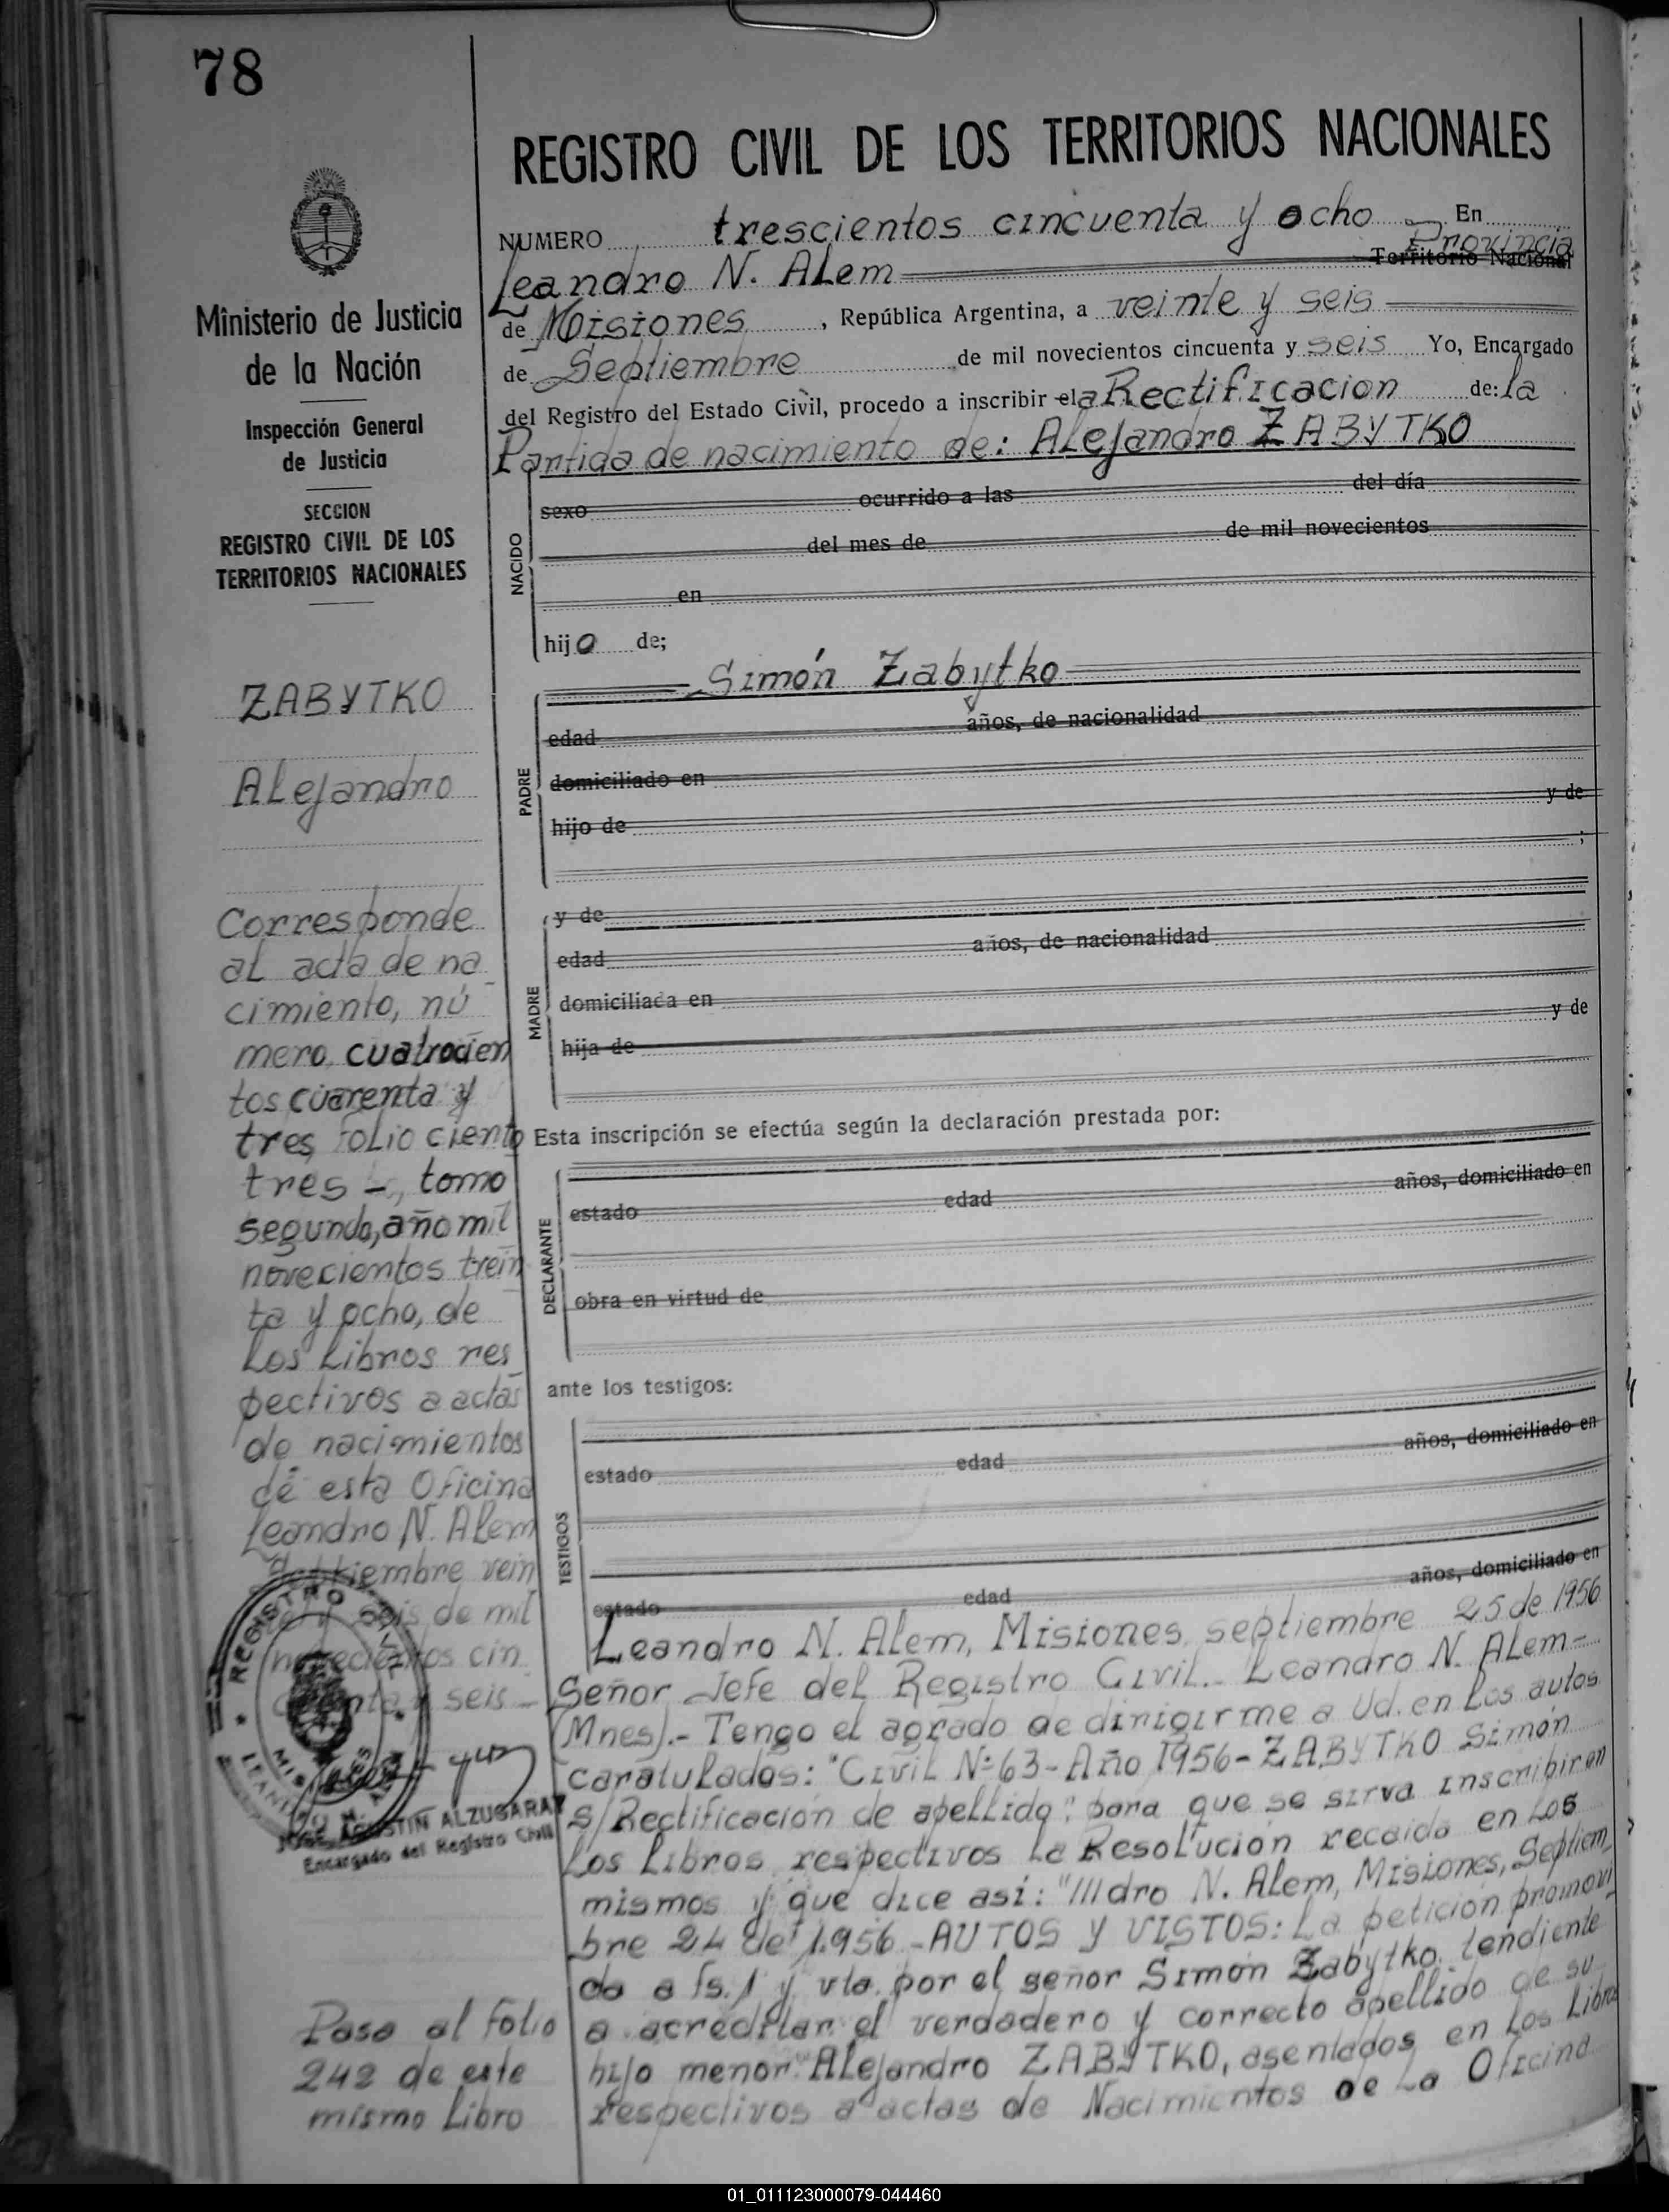 78
Ministerio de Justicia
de la Nación
Inspección General
de Justicia
SECCION
REGISTRO CIVIL DE LOS
TERRITORIOS NACIONALES
ZABYTKO
Alejandro
Corresponde
al acta de na
cimiento, nú
mero cuatrocien
tos cuarenta y
tres, folio ciento
tres -, tomo
segundo, año mil
novecientos trein
ta y ocho, de
los libros res
pectivos a actas
de nacimientos
de esta Oficina
Leandro N. Alem
septiembre vein
seis de mil
novecientos cin
cuenta y seis -
REGISTRO CIVIL
LEANDRO N. ALEM
MISIONES
JOSE AGUSTIN ALZUGARAY
Encargado del Registro Civil
Pasa al folio
242 de este
mismo Libro
REGISTRO CIVIL DE LOS TERRITORIOS NACIONALES
NUMERO trescientos cincuenta y ocho En
Provincia
Leandro N. Alem Territorio Nacional
de Misiones, República Argentina, a veinte y seis
de Septiembre de mil novecientos cincuenta y seis Yo, Encargado
del Registro del Estado Civil, procedo a inscribir el a Rectificacion de: la
Partida de nacimiento de: Alejandro ZABYTKO
NACIDO
sexo ocurrido a las del día
del mes de de mil novecientos
en
hijo de;
PADRE
Simón Zabytko
edad años, de nacionalidad
domiciliado en
hijo de y de
;
MADRE
y de
edad años, de nacionalidad
domiciliada en
hija de y de
Esta inscripción se efectúa según la declaración prestada por:
DECLARANTE
estado edad años, domiciliado en
obra en virtud de
ante los testigos:
TESTIGOS
estado edad años, domiciliado en
estado edad años, domiciliado en
Leandro N. Alem, Misiones, septiembre 25 de 1956
Señor Jefe del Registro Civil.- Leandro N. Alem-
(Mnes).- Tengo el agrado de dirigirme a Ud. en los autos
caratulados: "Civil Nº 63 - Año 1956 - ZABYTKO Simón
s/Rectificación de apellido", para que se sirva inscribir en
los libros respectivos la Resolución recaída en los
mismos y que dice así: "///dro N. Alem, Misiones, Septiem
bre 24 de 1.956 - AUTOS Y VISTOS: La petición promovi
da a fs. 1 y vta. por el señor Simón Zabytko, tendiente
a acreditar el verdadero y correcto apellido de su
hijo menor Alejandro ZABYTKO, asentados en los libros
respectivos a actas de Nacimientos de la Oficina
01_011123000079-044460